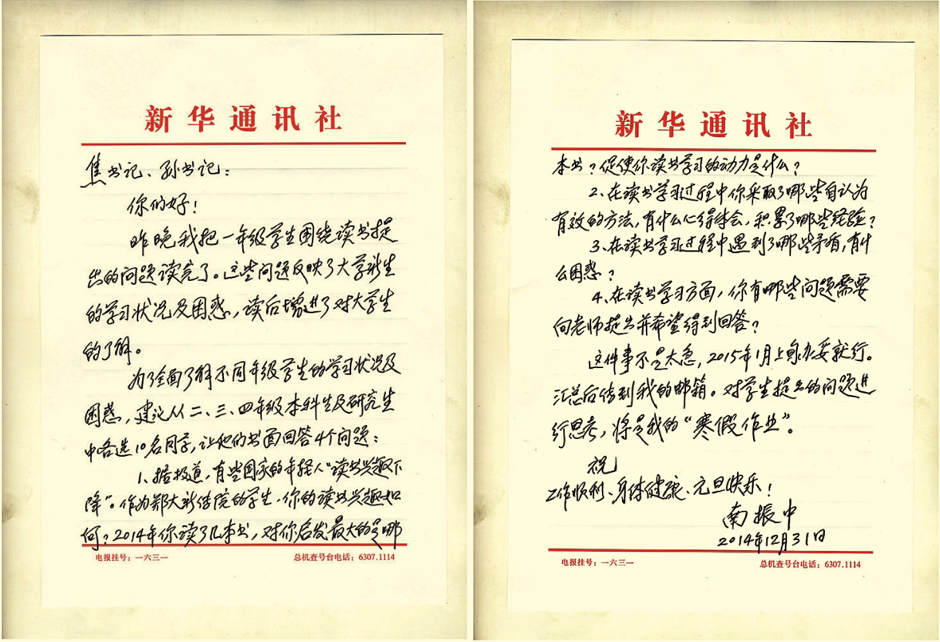 新华通讯社
焦书记、孙书记：
你们好！
昨晚我把一年级学生围绕读书提
出的问题读完了。这些问题反映了大学新生
的学习状况及困惑，读后增进了对大学生
的了解。
为了全面了解不同年级学生的学习状况及
困惑，建议从二、三、四年级本科生及研究生
中各选10名同学，让他们书面回答4个问题：
1、据报道，有些国家的年轻人“读书兴趣下
降”。作为郑大新传院的学生，你的读书兴趣如
何？2014年你读了几本书，对你启发最大的是哪
电报挂号：一六三一
总机查号台电话：6307.1114
新华通讯社
本书？促使你读书学习的动力是什么？
2、在读书学习过程中你采取了哪些自认为
有效的方法，有什么心得体会，积累了哪些经验？
3、在读书学习过程中遇到了哪些矛盾，有什
么困惑？
4、在读书学习方面，你有哪些问题需要
向老师提出并希望得到回答？
这件事不是太急，2015年1月上旬办妥就行。
汇总后传到我的邮箱。对学生提出的问题进
行思考，将是我的“寒假作业”。
祝
工作顺利、身体健康、元旦快乐！
南振中
2014年12月31日
电报挂号：一六三一
总机查号台电话：6307.1114